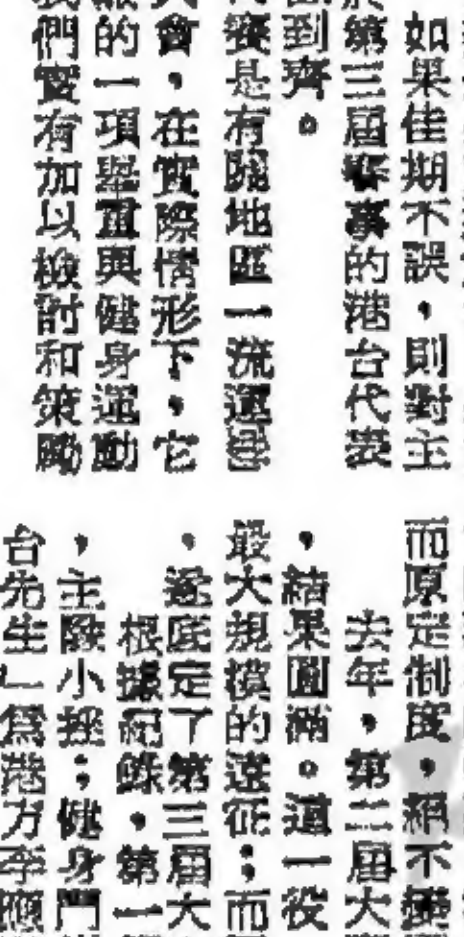 如果佳期不誤，則對主
第三屆賽事的港台代表
到齊。
賽是有關地區一流運
會，在實際情形下，它
的一項舉重與健身運動
們實有加以檢討和策勵
而原定制度，
去年，第二屆大
，結果圓滿。這一役
最大規模的遠征；而
，遂底定了第三屆大
根據紀錄，第一
，主隊小挫；健身門
台先生」為港方李